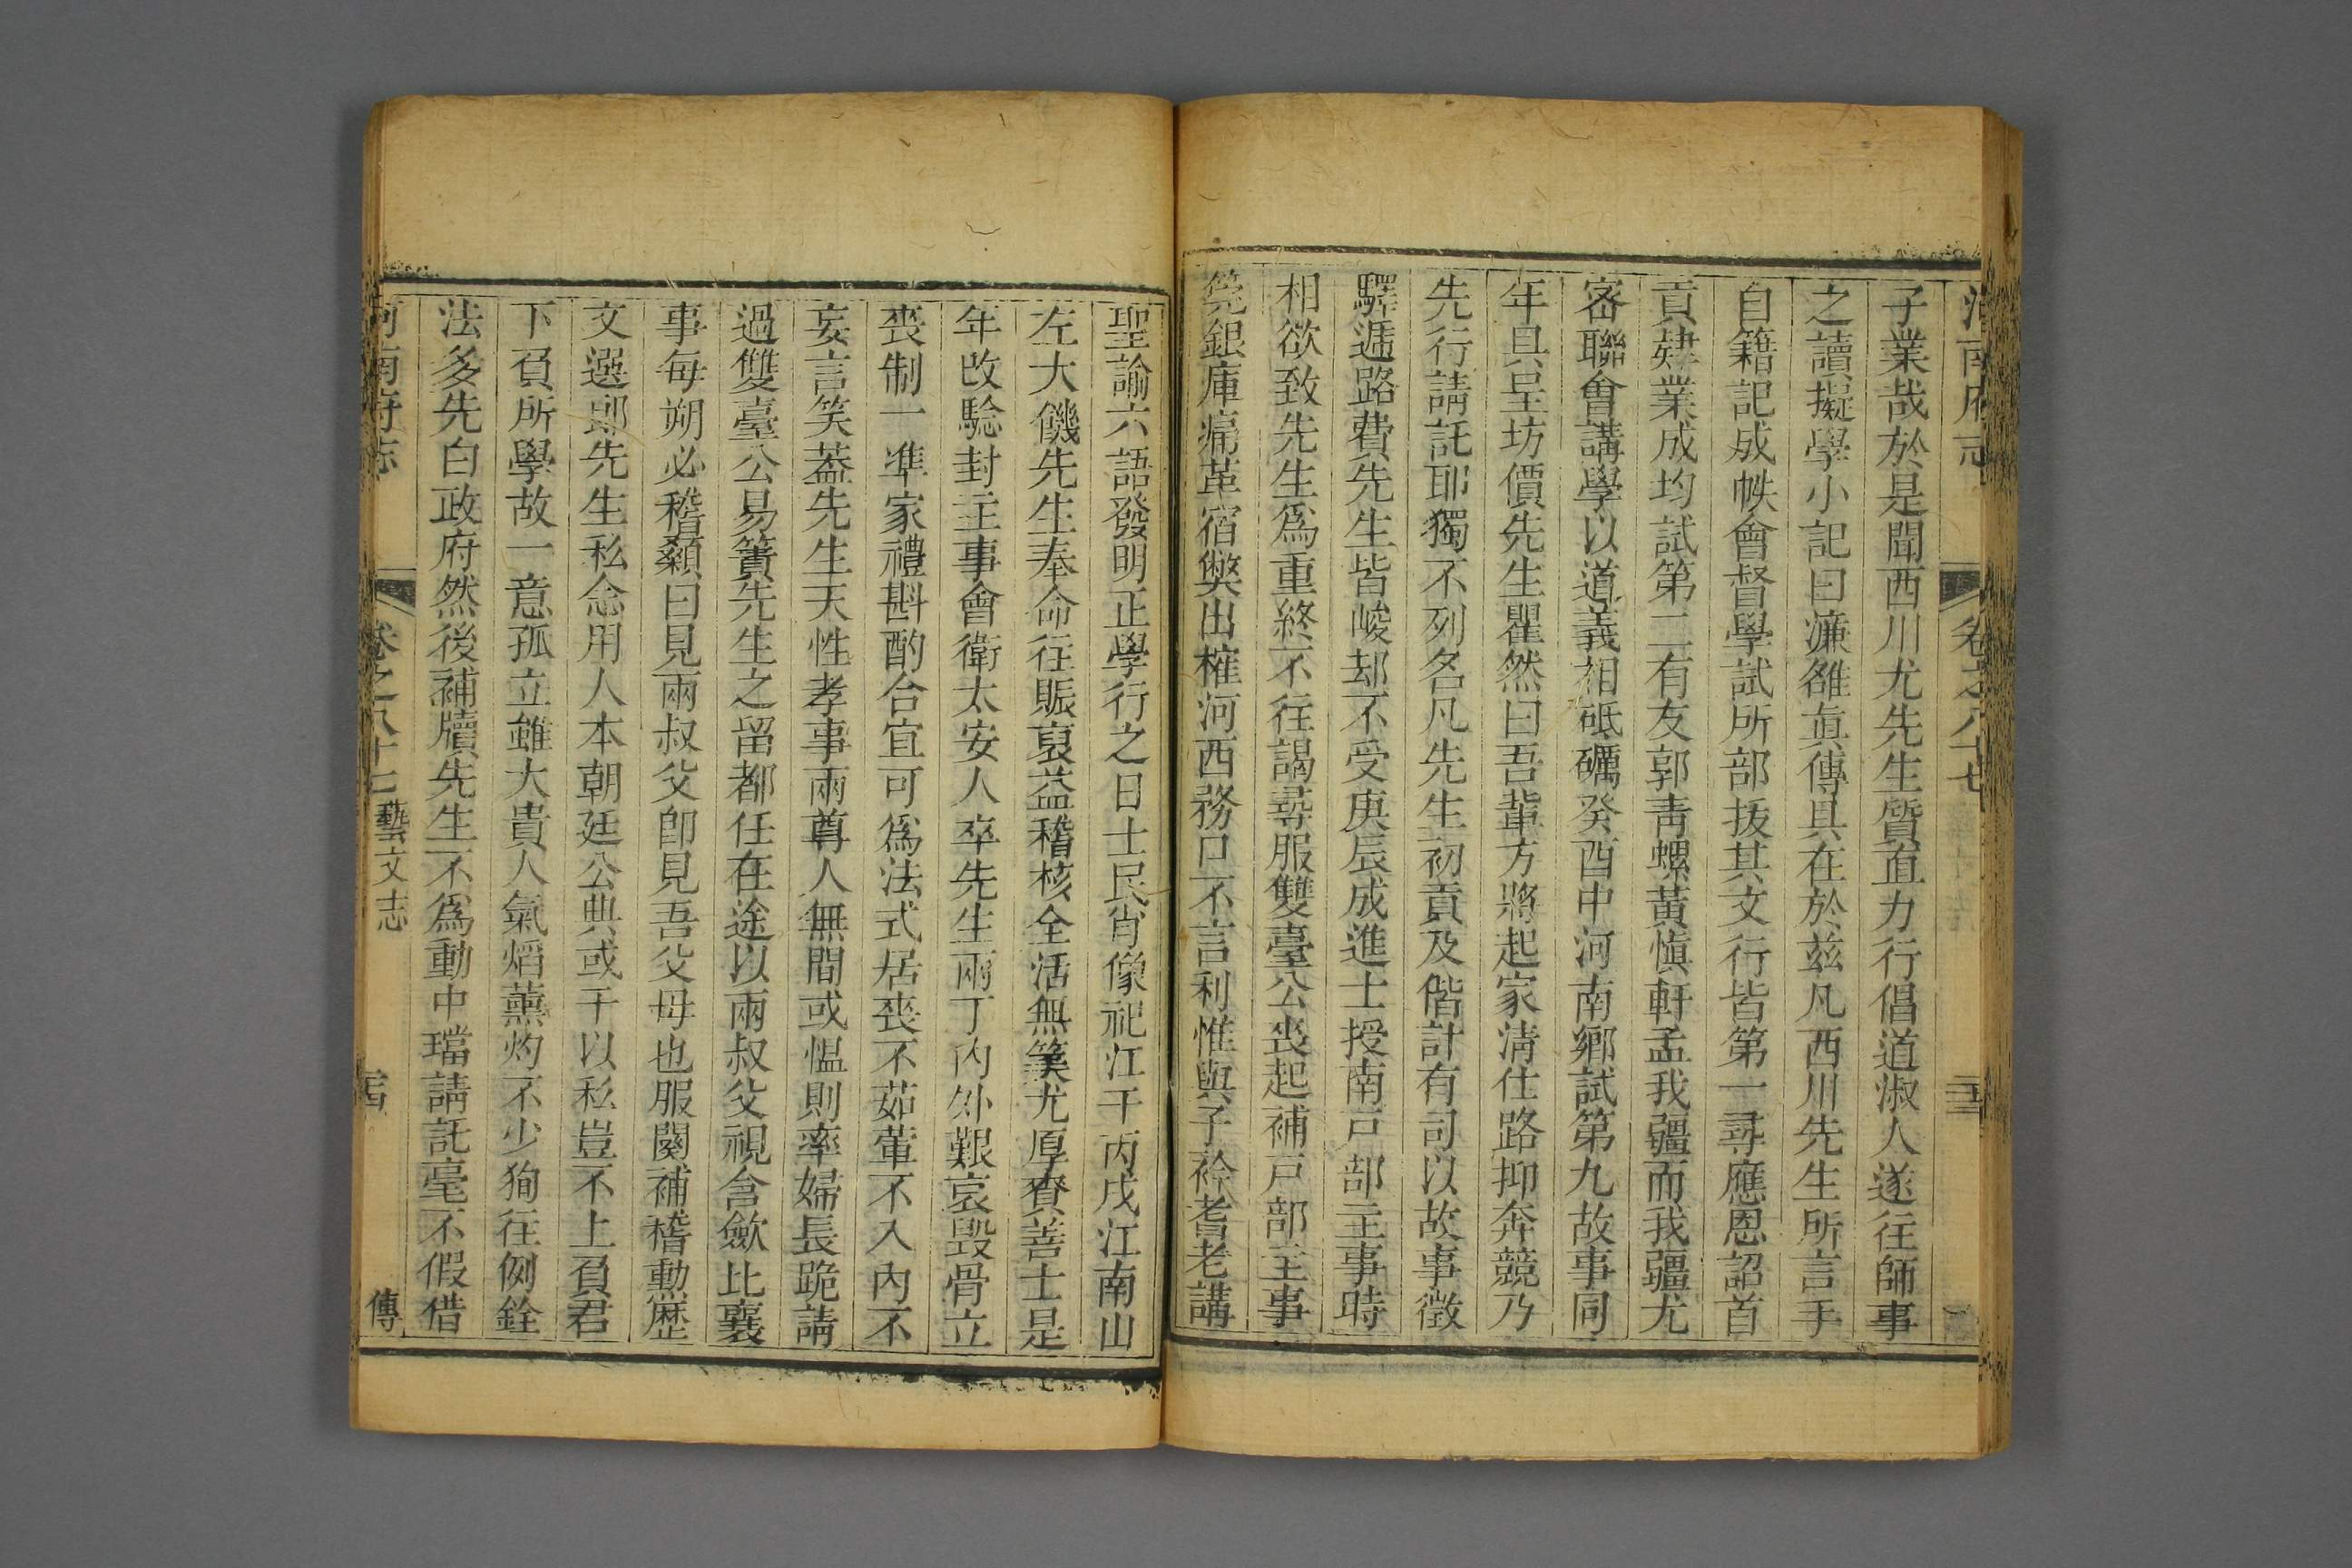 河南府志 卷之八十七
子業哉於是聞西川尤先生質直力行倡道淑人遂往師事
之讀擬學小記曰濂雒眞傳具在於兹凡西川先生所言手
自籍記成帙會督學試所部拔其文行皆第一尋應恩詔首
貢肄業成均試第二有友郭靑螺黃愼軒孟我疆而我疆尤
密聯會講學以道義相砥礪癸酉中河南鄉試第九故事同
年具呈坊價先生瞿然曰吾軰方將起家淸仕路抑奔競乃
先行請託耶獨不列名凡先生初貢及偕計有司以故事徵
驛遞路費先生皆峻却不受庚辰成進士授南戸部主事時
相欲致先生爲重終不往謁尋服雙臺公喪起補戸部主事
筦銀庫痛革宿獘出榷河西務口不言利惟與子衿耆老講
聖諭六語發明正學行之日士民肖像祀江干丙戌江南山
左大饑先生奉命往賑裒益稽核全活無筭尤厚賚善士是
年改驗封主事會衛太安人卒先生兩丁内外艱哀毁骨立
喪制一凖家禮斟酌合宜可爲法式居喪不茹葷不入内不
妄言笑葢先生天性孝事兩尊人無間或愠則率婦長跪請
過雙臺公易簀先生之留都任在途以兩叔父視含歛比襄
事每朔必稽顙曰見兩叔父卽見吾父母也服闋補稽勲歴
文選郎先生私念用人本朝廷公典或干以私豈不上負君
下負所學故一意孤立雖大貴人氣熖薰灼不少狥往例銓
法多先白政府然後補牘先生不爲動中璫請託毫不假借
河南府志 卷之八十七 藝文志 傳